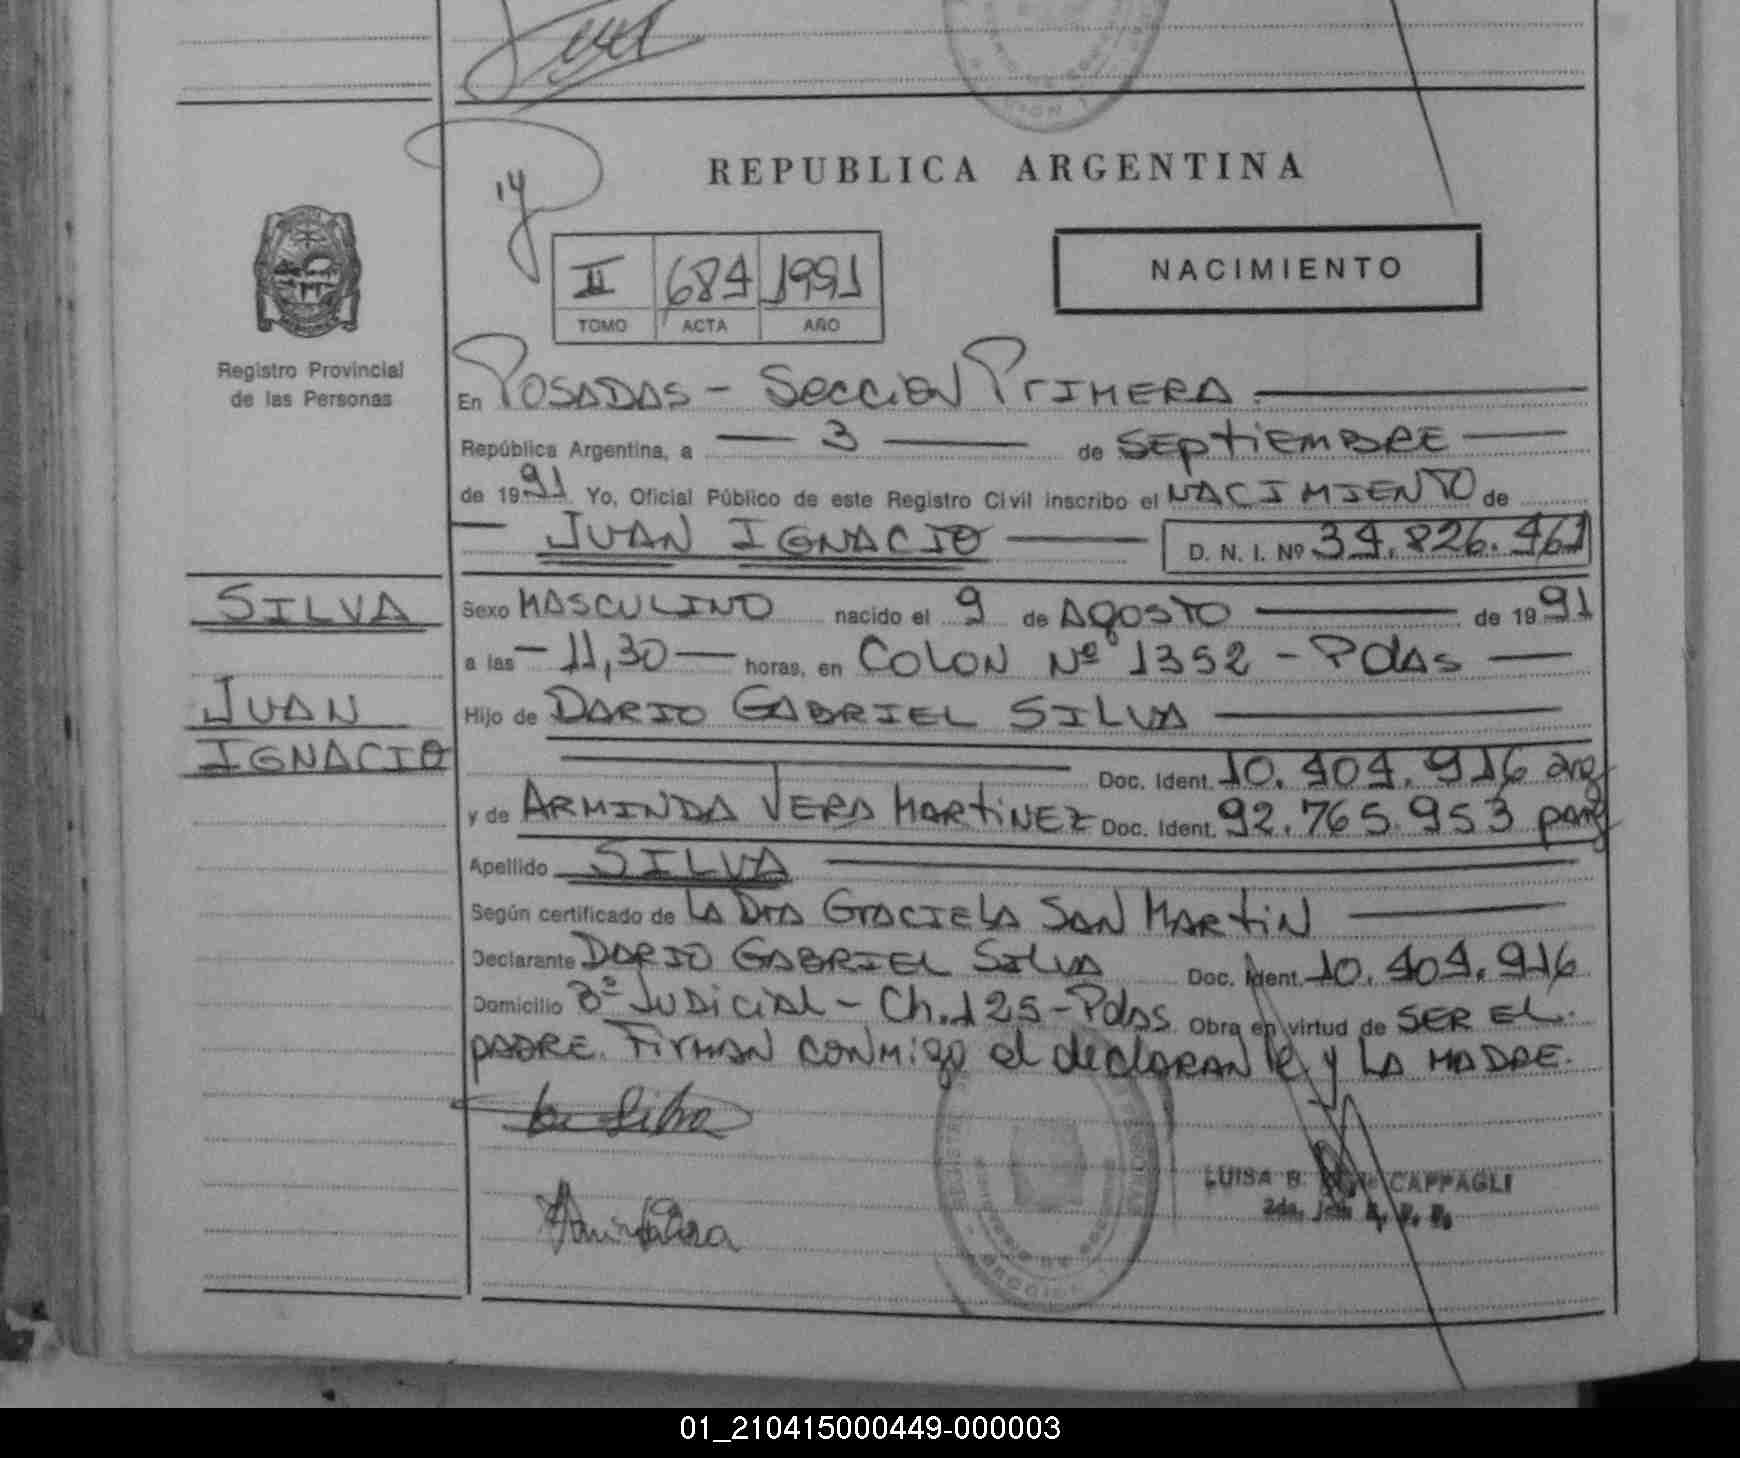 REPUBLICA ARGENTINA
NACIMIENTO
II 684 1991
TOMO ACTA AÑO
Registro Provincial
de las Personas
En POSADAS - SECCION PRIMERA
República Argentina, a 3 de SEPTIEMBRE
de 1991 Yo, Oficial Público de este Registro Civil inscribo el NACIMIENTO de
JUAN IGNACIO D. N. I. Nº 34.826.461
SILVA
JUAN
IGNACIO
Sexo MASCULINO nacido el 9 de AGOSTO de 1991
a las - 11,30 - horas, en COLON Nº 1352 - Pdas
Hijo de DARIO GABRIEL SILVA
Doc. Ident. 10.404.916 arg
y de ARMINDA VERA MARTINEZ Doc. Ident. 92.765.953 parg
Apellido SILVA
Según certificado de LA Dra GRACIELA SAN MARTIN
Declarante DARIO GABRIEL SILVA Doc. Ident. 10.404.916
Domicilio Bº JUDICIAL - Ch. 125 - Pdas. Obra en virtud de SER EL
PADRE. FIRMAN CONMIGO el declarante y LA MADRE.
LUISA B. CAPPAGLI
2da. Jefe R. P. P.
01_210415000449-000003